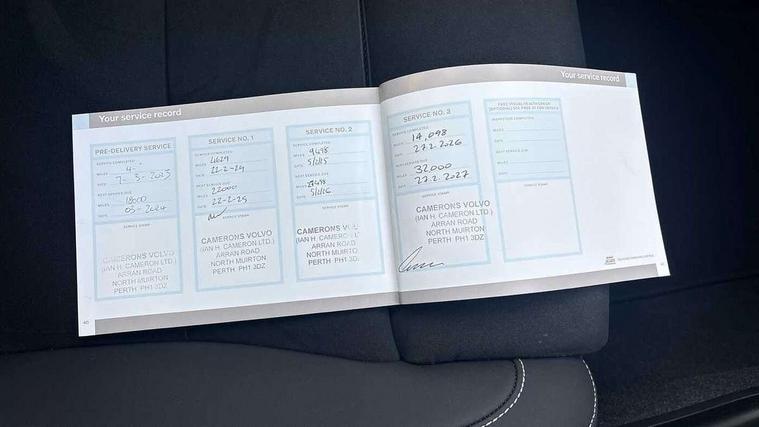 Your service record
PRE-DELIVERY SERVICE
SERVICE COMPLETED
MILES 4
DATE 7-3-2023
NEXT SERVICE DUE
MILES 18000
DATE 03-2024
SERVICE STAMP
CAMERONS VOLVO
(IAN H. CAMERON LTD.)
ARRAN ROAD
NORTH MUIRTON
PERTH PH1 3DZ
SERVICE NO. 1
SERVICE COMPLETED
MILES 4629
DATE 22-2-24
NEXT SERVICE DUE
MILES 22000
DATE 22-2-25
SERVICE STAMP
CAMERONS VOLVO
(IAN H. CAMERON LTD.)
ARRAN ROAD
NORTH MUIRTON
PERTH PH1 3DZ
SERVICE NO. 2
SERVICE COMPLETED
MILES 9498
DATE
NEXT SERVICE DUE
MILES
DATE
SERVICE STAMP
CAMERONS
(IAN H. CAMERON
ARRAN ROAD
NORTH MUIRTON
PERTH PH1 3D
Your service record
SERVICE NO. 3
SERVICE COMPLETED
MILES 14,098
DATE 27.2.2026
NEXT SERVICE DUE
MILES 32000
DATE 27.2.2027
SERVICE STAMP
CAMERONS VOLVO
(IAN H. CAMERON LTD.)
ARRAN ROAD
NORTH MUIRTON
PERTH PH1 3DZ
MILES
DATE
NEXT SERVICE DUE
MILES
DATE
SERVICE STAMP
40